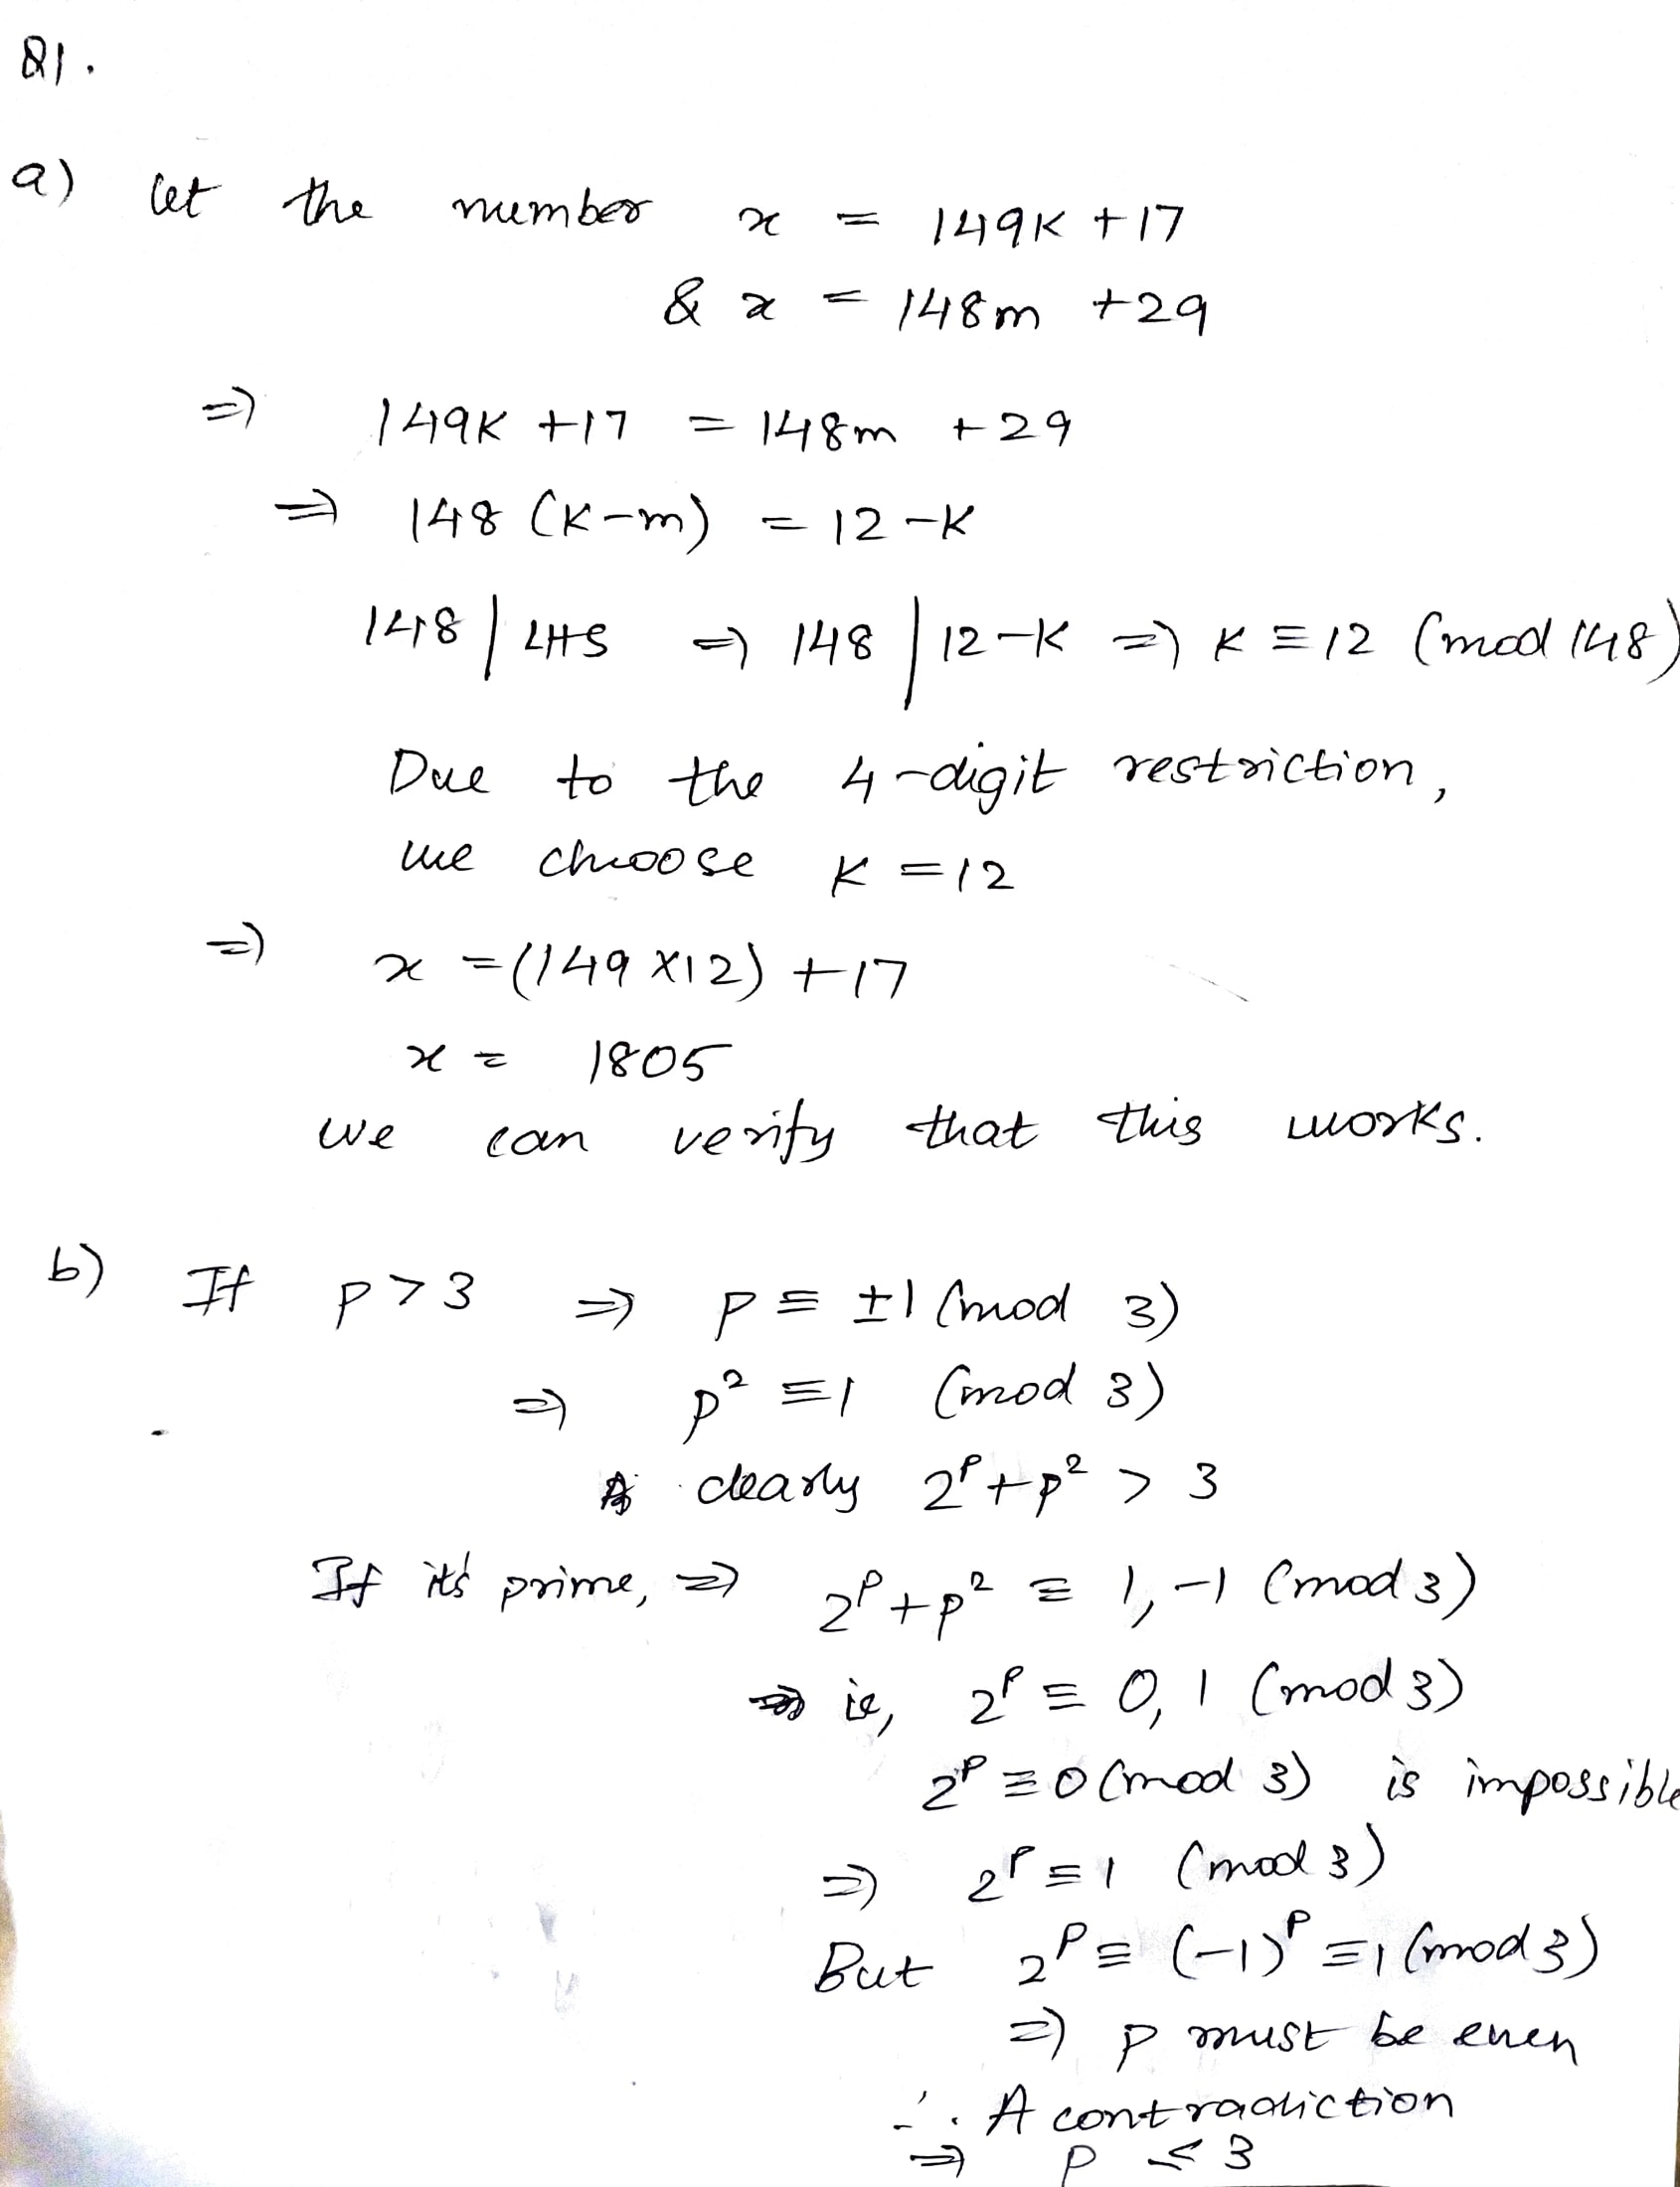 Q1.
a) let the number x = 149K + 17
& x = 148m + 29
⇒ 149K + 17 = 148m + 29
⇒ 148 (K-m) = 12 - K
148 | LHS ⇒ 148 | 12-K ⇒ K ≡ 12 (mod 148)
Due to the 4-digit restriction,
we choose K = 12
⇒ x = (149 × 12) + 17
x = 1805
we can verify that this works.
b) If p > 3 ⇒ p ≡ ±1 (mod 3)
⇒ p² ≡ 1 (mod 3)
clearly 2^p + p² > 3
If it's prime, ⇒ 2^p + p² ≡ 1, -1 (mod 3)
ie, 2^p ≡ 0, 1 (mod 3)
2^p ≡ 0 (mod 3) is impossible
⇒ 2^p ≡ 1 (mod 3)
But 2^p ≡ (-1)^p ≡ 1 (mod 3)
⇒ p must be even
∴ A contradiction
⇒ p ≤ 3